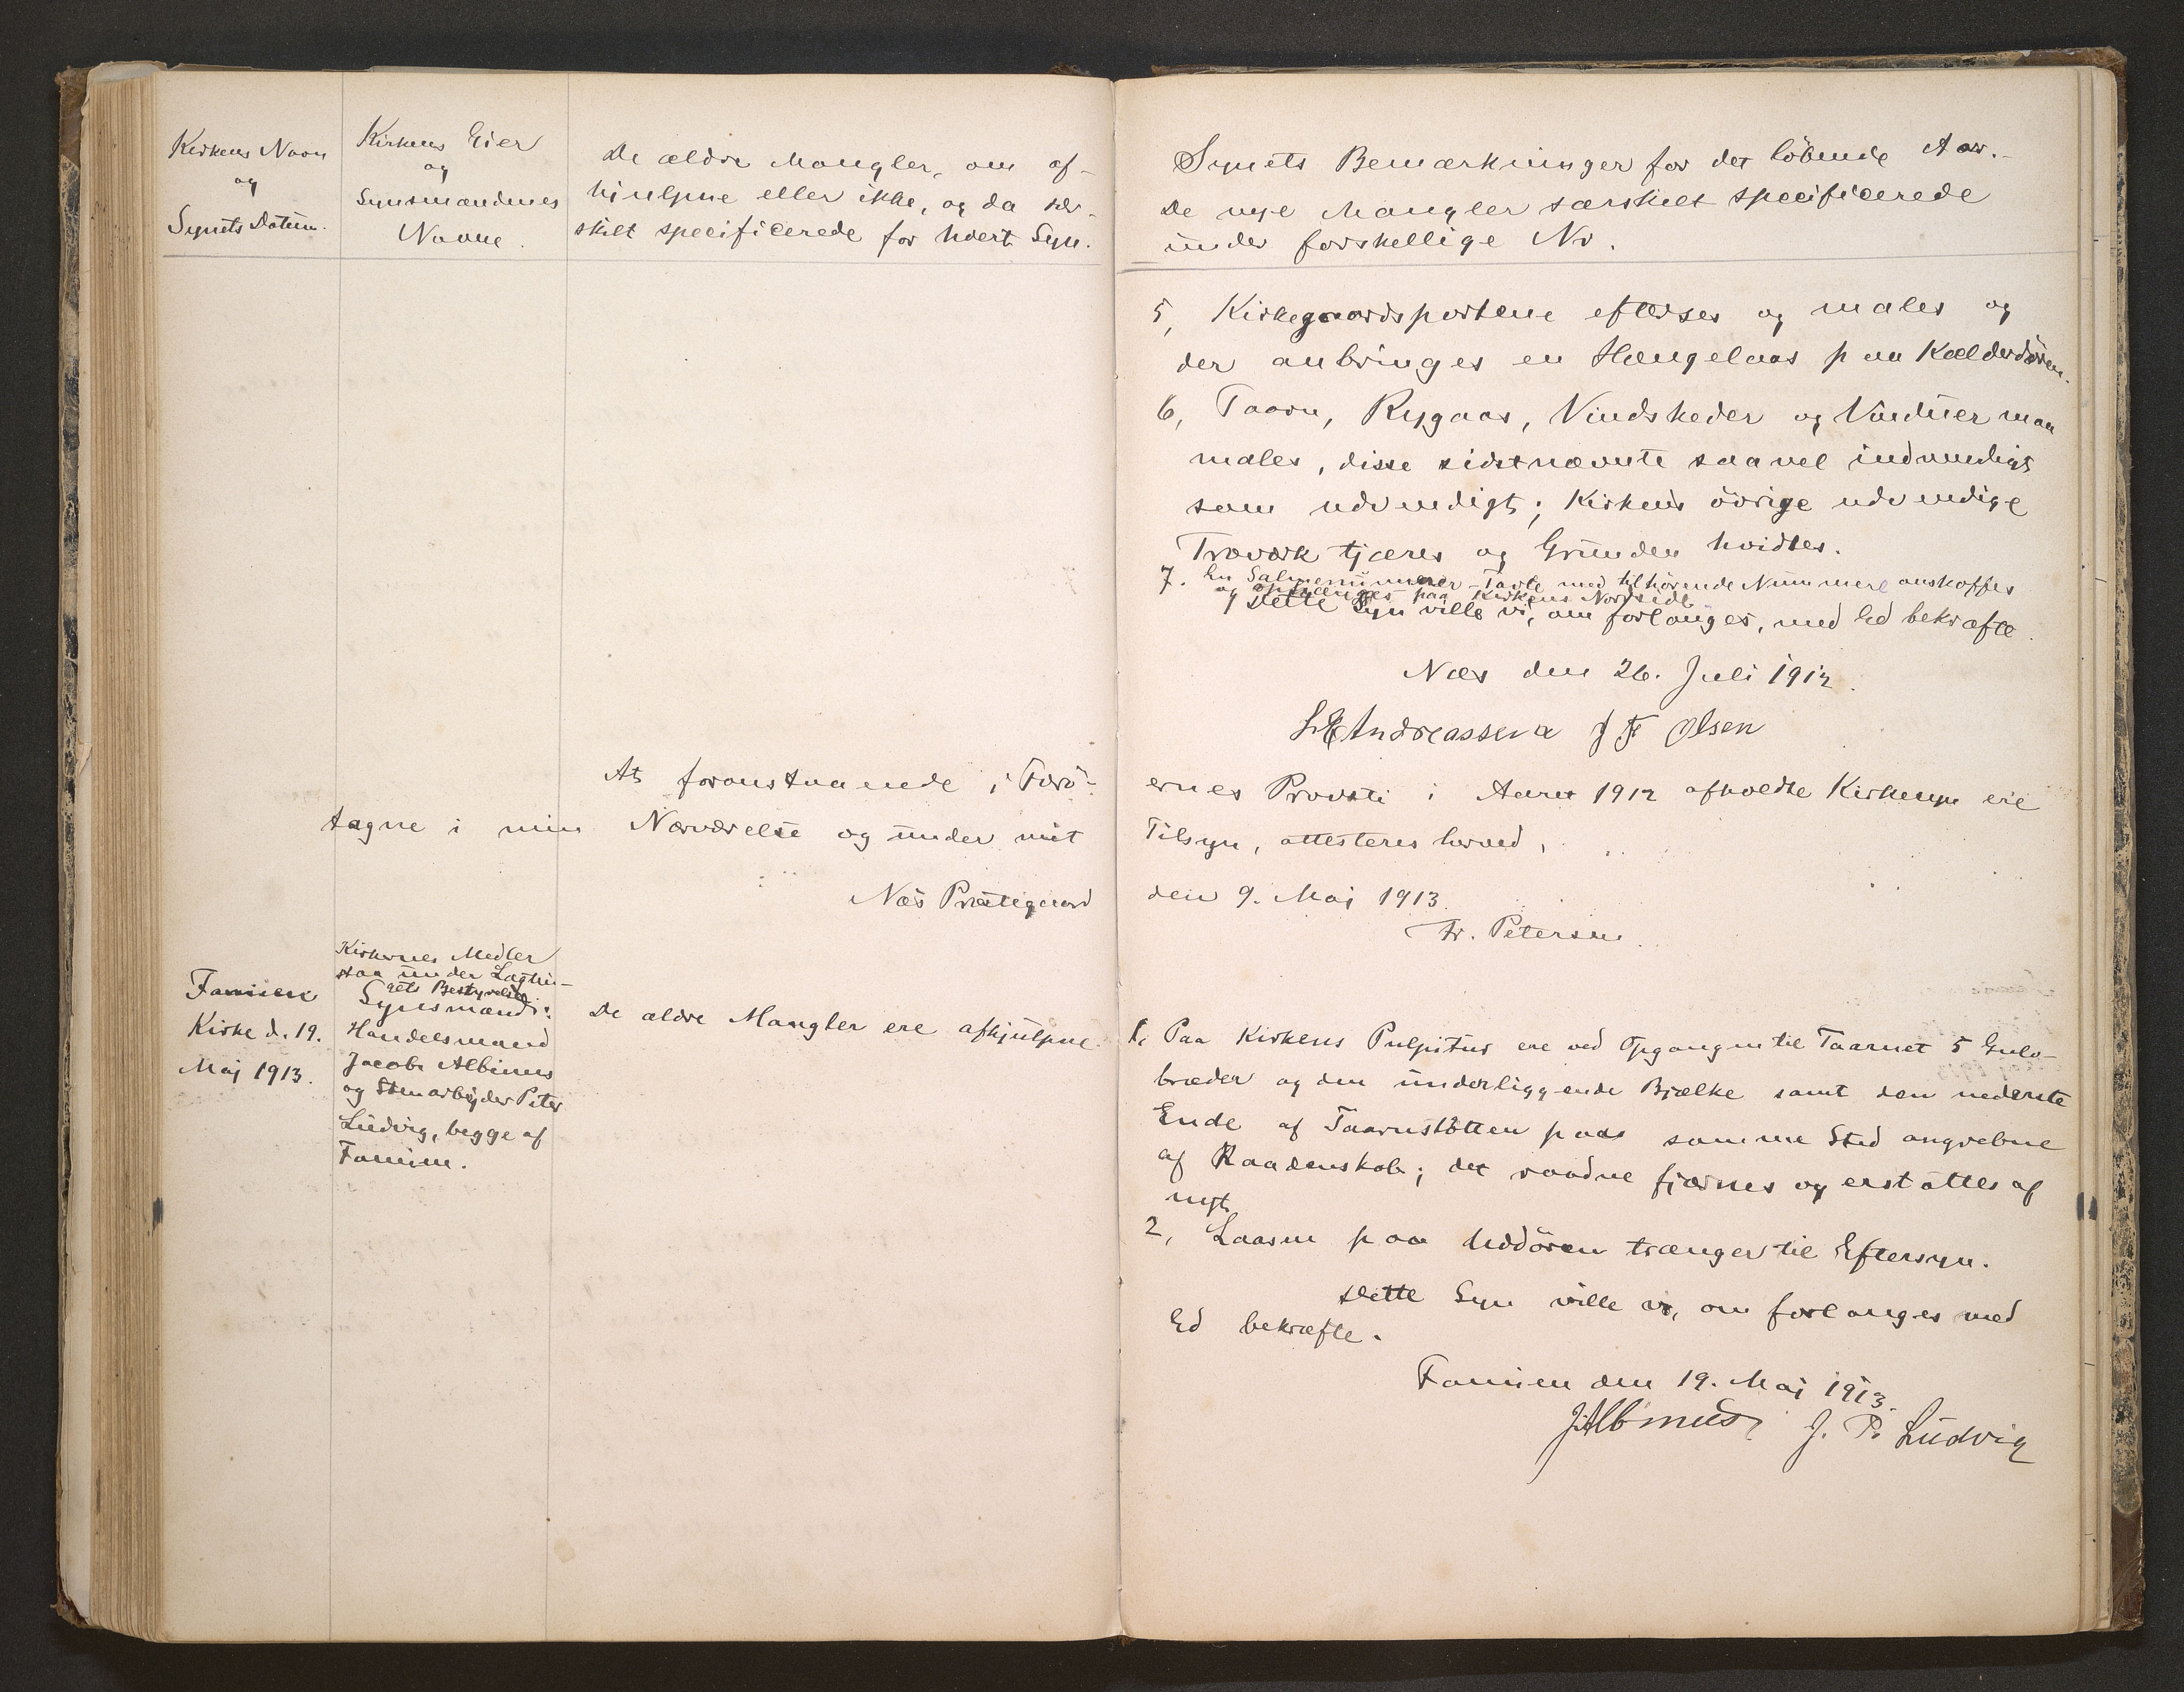 Kirkens Navn
og
Synets Datum.
Kirkens Eier
og
Synsmændenes
Navne.
De ældre Mangler, om af-
hjulpne eller ikke, og da sær-
skilt specificerede for hvert Syn.
At foranstaaende i Færö-
tagne i min Nærværelse og under mit
Næs Præstegaard
Famien
Kirke d. 19.
Maj 1913.
Kirkernes Midler
staa under Lagtin-
gets Bestyrelse.
Synsmænd:
Handelsmand
Jacob Albinus
og Stenarbejder Peter
Ludvig, begge af
Famien.
De ældre Mangler ere afhjulpne.
Synets Bemærkninger for det löbende Aar.-
De nye Mangler særskilt specificerede
under forskellige Nr.
5, Kirkegaardsportene efterses og males og
der anbringes en Hængelaas paa Kælderdören.
6, Taarn, Rygaas, Vindskeder og Vinduer maa
males, disse sidstnævnte saavel indvendigt
som udvendigt; Kirkens övrige udvendige
Træværk tjæres og Grunden hvidtes.
7. En Salmenummer-Tavle med tilhörende Nummere anskaffes
og ophænges paa Kirkens Nordside
Dette Syn ville vi, om forlanges, med Ed bekræfte.
Næs den 26. Juli 1912.
Andreassen J F Olsen
ernes Provsti i Aaret 1912 afholdte Kirkesyn ere
Tilsyn, attesteres herved,
den 9. Maj 1913.
Fr. Petersen.
1, Paa Kirkens Pulpitur ere ved Opgangen til Taarnet 5 Gulv-
bræder og den underliggende Bjælke samt den nederste
Ende af Taarnstötten paa samme Sted angrebne
af Raadenskab; det raadne fjærnes og erstattes af
nyt.
2, Laasen paa Uddören trænger til Eftersyn.
Dette Syn ville vi, om forlanges med
Ed bekræfte.
Famien den 19. Maj 1913.
J Albinus J. P. Ludvig